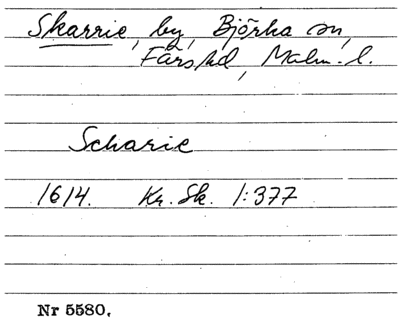 Skarrie, by, Björka sn,
Färs hd, Malm. l.
Scharie
1614. Kr. Sk. 1:377
Nr 5580.